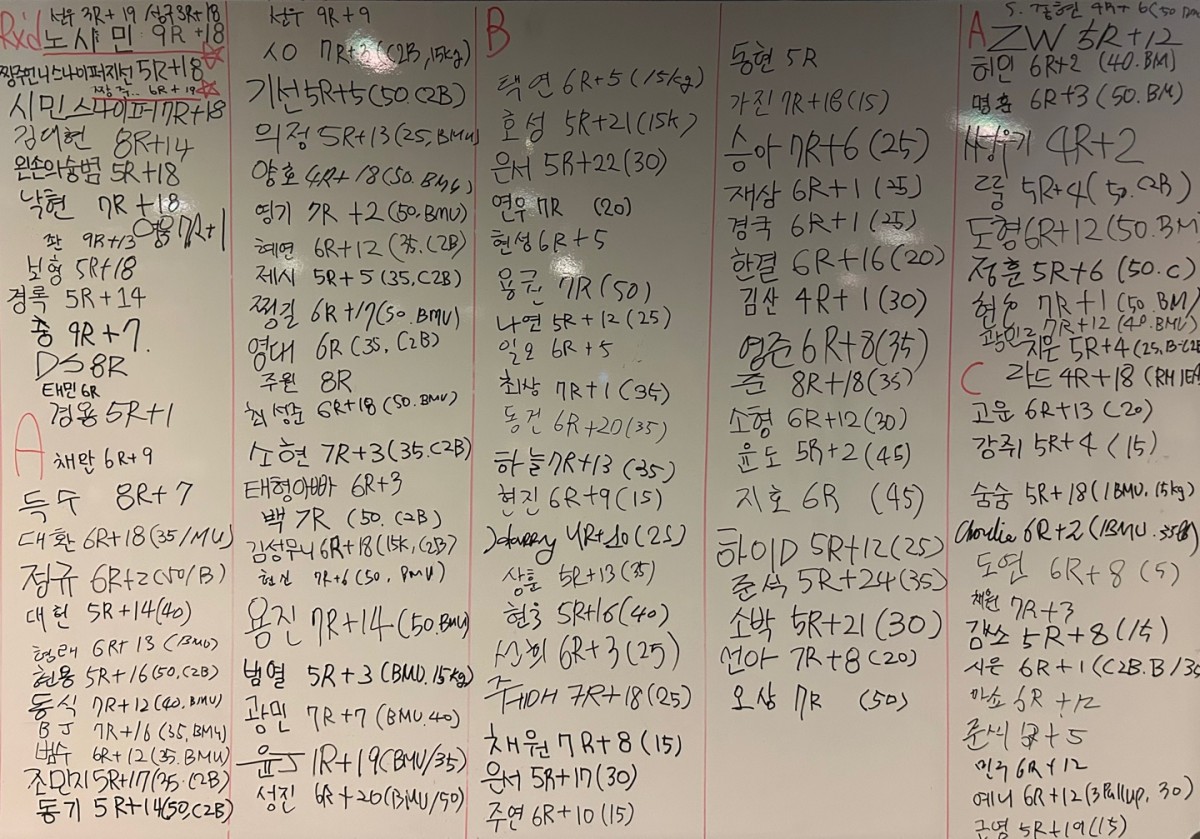 선우 3R+19 / 성국 3R+18
Rx'd 노시민 9R+18
짱주언니스나이퍼지선 5R+18
짱주.. 6R+19
시민스나이퍼 7R+18
김대현 8R+14
왼손의승범 5R+18
낙현 7R+18
여웅 7R+1
좐 9R+13
보형 5R+18
경록 5R+14
홍 9R+7
DS 8R
태민 6R
경용 5R+1
A
채완 6R+9
득수 8R+7
대환 6R+18(35/MU)
정규 6R+2(50/B)
대헌 5R+14(40)
형래 6R+13 (BMU)
현용 5R+16(50,C2B)
동식 7R+12(40.BMU)
BJ 7R+16(35,BMU)
범수 6R+12(35.BMU)
조민지 5R+17(35.C2B)
동기 5R+14(50,C2B)
선우 9R+9
시O 7R+3(C2B,15kg)
기선 5R+5(50.C2B)
의정 5R+13(25,BMU)
양호 4R+18(50.BMU)
영기 7R+2(50.BMU)
혜연 6R+12(35.C2B)
제시 5R+5(35,C2B)
쩡길 6R+17(50.BMU)
영대 6R(35,C2B)
주원 8R
최성준 6R+18(50.BMU)
소현 7R+3(35.C2B)
태형아빠 6R+3
백 7R (50.C2B)
김성무니 6R+18(15K,C2B)
현진 7R+6(50,BMU)
용진 7R+14(50.BMU)
범열 5R+3(BMU.15kg)
광민 7R+7(BMU.40)
윤J 1R+19(BMU/35)
성진 6R+20(BMU/50)
B
택연 6R+5(15kg)
호성 5R+21(15K)
은서 5R+22(30)
연우 7R (20)
현성 6R+5
용권 7R(50)
나연 5R+12(25)
일오 6R+5
최상 7R+1(35)
동건 6R+20(35)
하늘 7R+13(35)
현진 6R+9(15)
Harry 4R+10(25)
상훈 5R+13(35)
현호 5R+16(40)
선희 6R+3(25)
주HDH 7R+18(25)
채원 7R+8(15)
은서 5R+17(30)
주연 6R+10(15)
동현 5R
가진 7R+18(15)
승아 7R+6(25)
재상 6R+1(25)
경국 6R+1(25)
한결 6R+16(20)
김산 4R+1(30)
영준 6R+8(35)
준 8R+18(35)
소형 6R+12(30)
윤도 5R+2(45)
지호 6R (45)
하이D 5R+12(25)
준석 5R+24(35)
소박 5R+21(30)
선아 7R+8(20)
오상 7R (50)
6R+6(50
A ZW 5R+12
허인 6R+2 (40.BM)
명훈 6R+3(50.BM)
4R+2
5R+4(50.C2B)
도형 6R+12(50.BM
정훈 5R+6(50.C)
7R+1(50.BM)
7R+12(40.BMU)
지은 5R+4(25,B-C2B
C 라드 4R+18(RM1EA
고운 6R+13(20)
강쥐 5R+4(15)
숨숨 5R+18(1BMU,15kg)
Chordia 6R+2(1BMU.35
도연 6R+8(5)
채원 7R+3
감쏘 5R+8(15)
시은 6R+1(C2B.B/35
마쏘 6R+12
준식 5R+5
민국 6R+12
예니 6R+12(3Pullup, 30)
근영 5R+19(15)